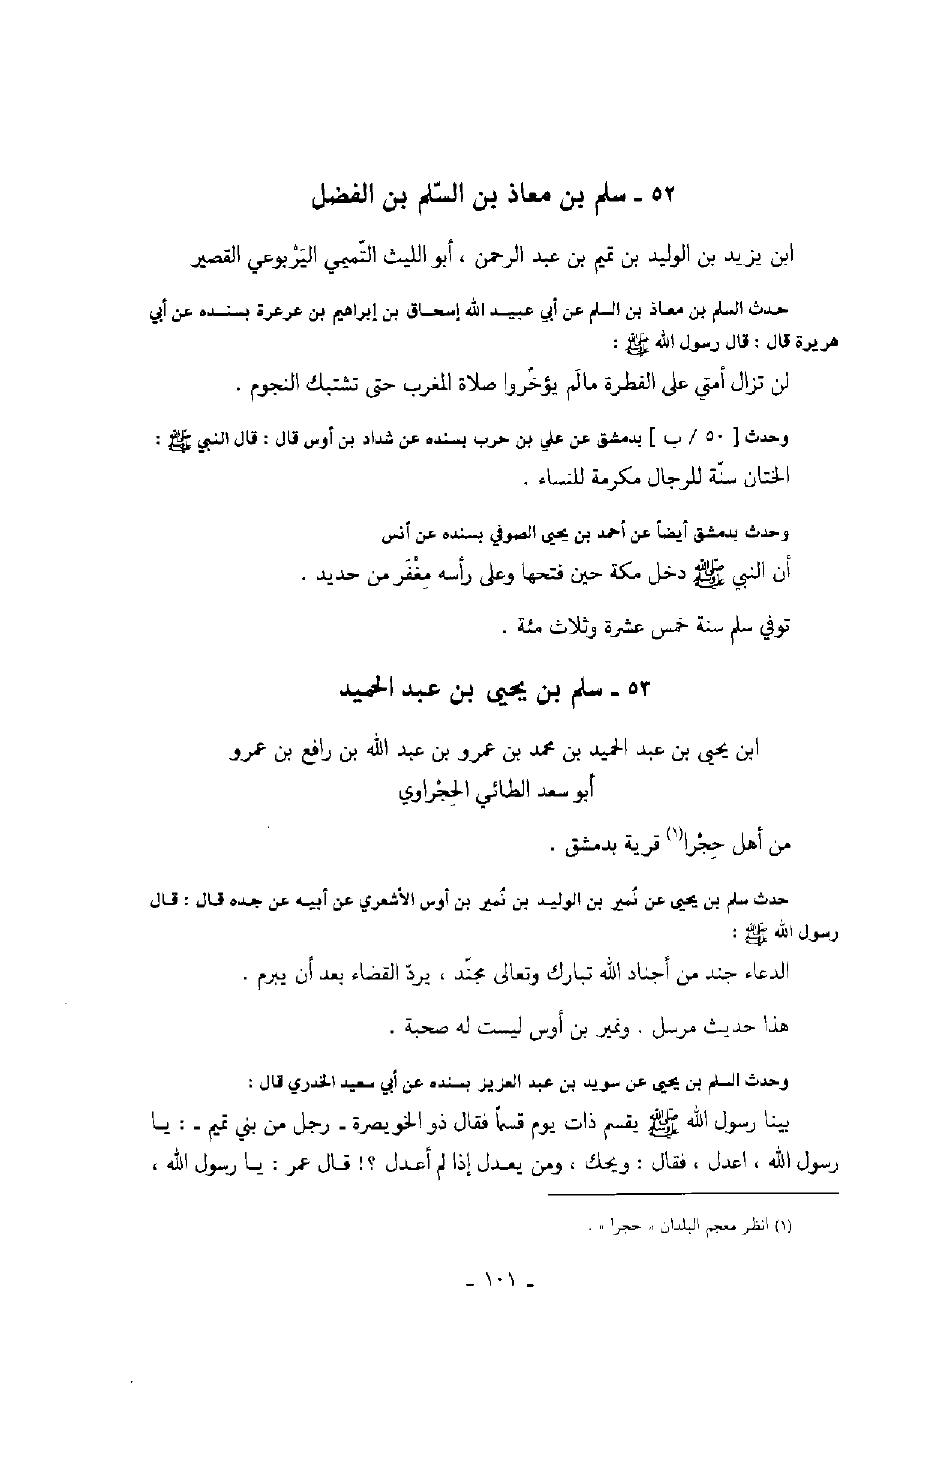 ٥٢ ـ سلم بن معاذ بن السّلم بن الفضل
ابن يزيد بن الوليد بن تميم بن عبد الرحمن ، أبو الليث التّميمي اليَرْبوعي القصير
حدث السلم بن معاذ بن السلم عن أبي عبيد الله إسحاق بن إبراهيم بن عرعرة بسنده عن أبي
هريرة قال : قال رسول الله ﷺ :
لن تزال أمتي على الفطرة مالَم يؤخّروا صلاة المغرب حتى تشتبك النجوم .
وحدث [ ٥٠ / ب ] بدمشق عن علي بن حرب بسنده عن شداد بن أوس قال : قال النبي ﷺ :
الختان سنّة للرجال مكرمة للنساء .
وحدث بدمشق أيضاً عن أحمد بن يحيى الصوفي بسنده عن أنس
أن النبي ﷺ دخل مكة حين فتحها وعلى رأسه مِغْفَر من حديد .
توفي سلم سنة خمس عشرة وثلاث مئة .
٥٣ ـ سلم بن يحيى بن عبد الحميد
ابن يحيى بن عبد الحميد بن محمد بن عمرو بن عبد الله بن رافع بن عمرو
أبو سعد الطائي الحِجْراوي
من أهل حِجْرا(١) قرية بدمشق .
حدث سلم بن يحيى عن نُمير بن الوليد بن نُمير بن أوس الأشعري عن أبيه عن جده قال : قال
رسول الله ﷺ :
الدعاء جند من أجناد الله تبارك وتعالى مجنّد ، يردّ القضاء بعد أن يبرم .
هذا حديث مرسل . ونمير بن أوس ليست له صحبة .
وحدث السلم بن يحيى عن سويد بن عبد العزيز بسنده عن أبي سعيد الخدري قال :
بينا رسول الله ﷺ يقسم ذات يوم قسماً فقال ذو الخويصرة ـ رجل من بني تميم ـ : يا
رسول الله ، اعدل ، فقال : ويحك ، ومن يعدل إذا لم أعدل ؟! قال عمر : يا رسول الله ،
(١) انظر معجم البلدان « حجرا » .
ـ ١٠١ ـ